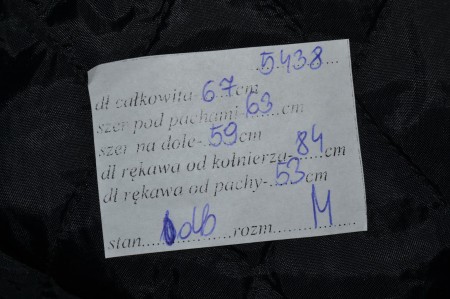 5438
dł całkowita-67cm
szer pod pachami-63cm
szer na dole-59cm
dł rękawa od kołnierza-84cm
dł rękawa od pachy-53cm
stan db rozm M